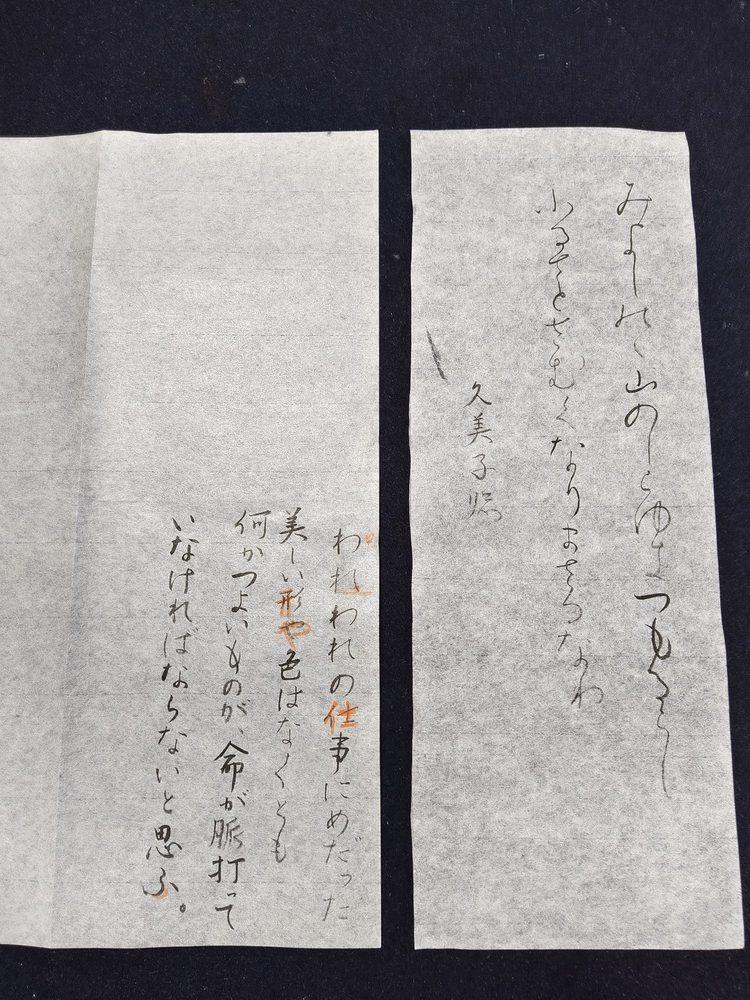 みよしのゝ山のしらゆきつもるらし
ふるさとさむくなりまさるなり
久美子臨
われわれの仕事にめだった
美しい形や色はなくとも
何かつよいものが、命が脈打って
いなければならないと思ふ。